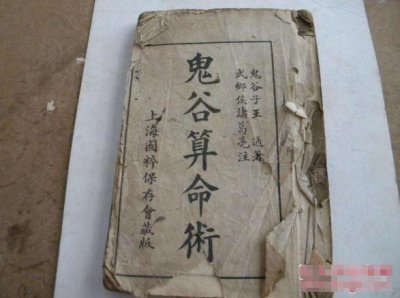 鬼谷子王著
武鄉侯諸葛亮注
鬼谷算命術
上海國粹保存會藏版